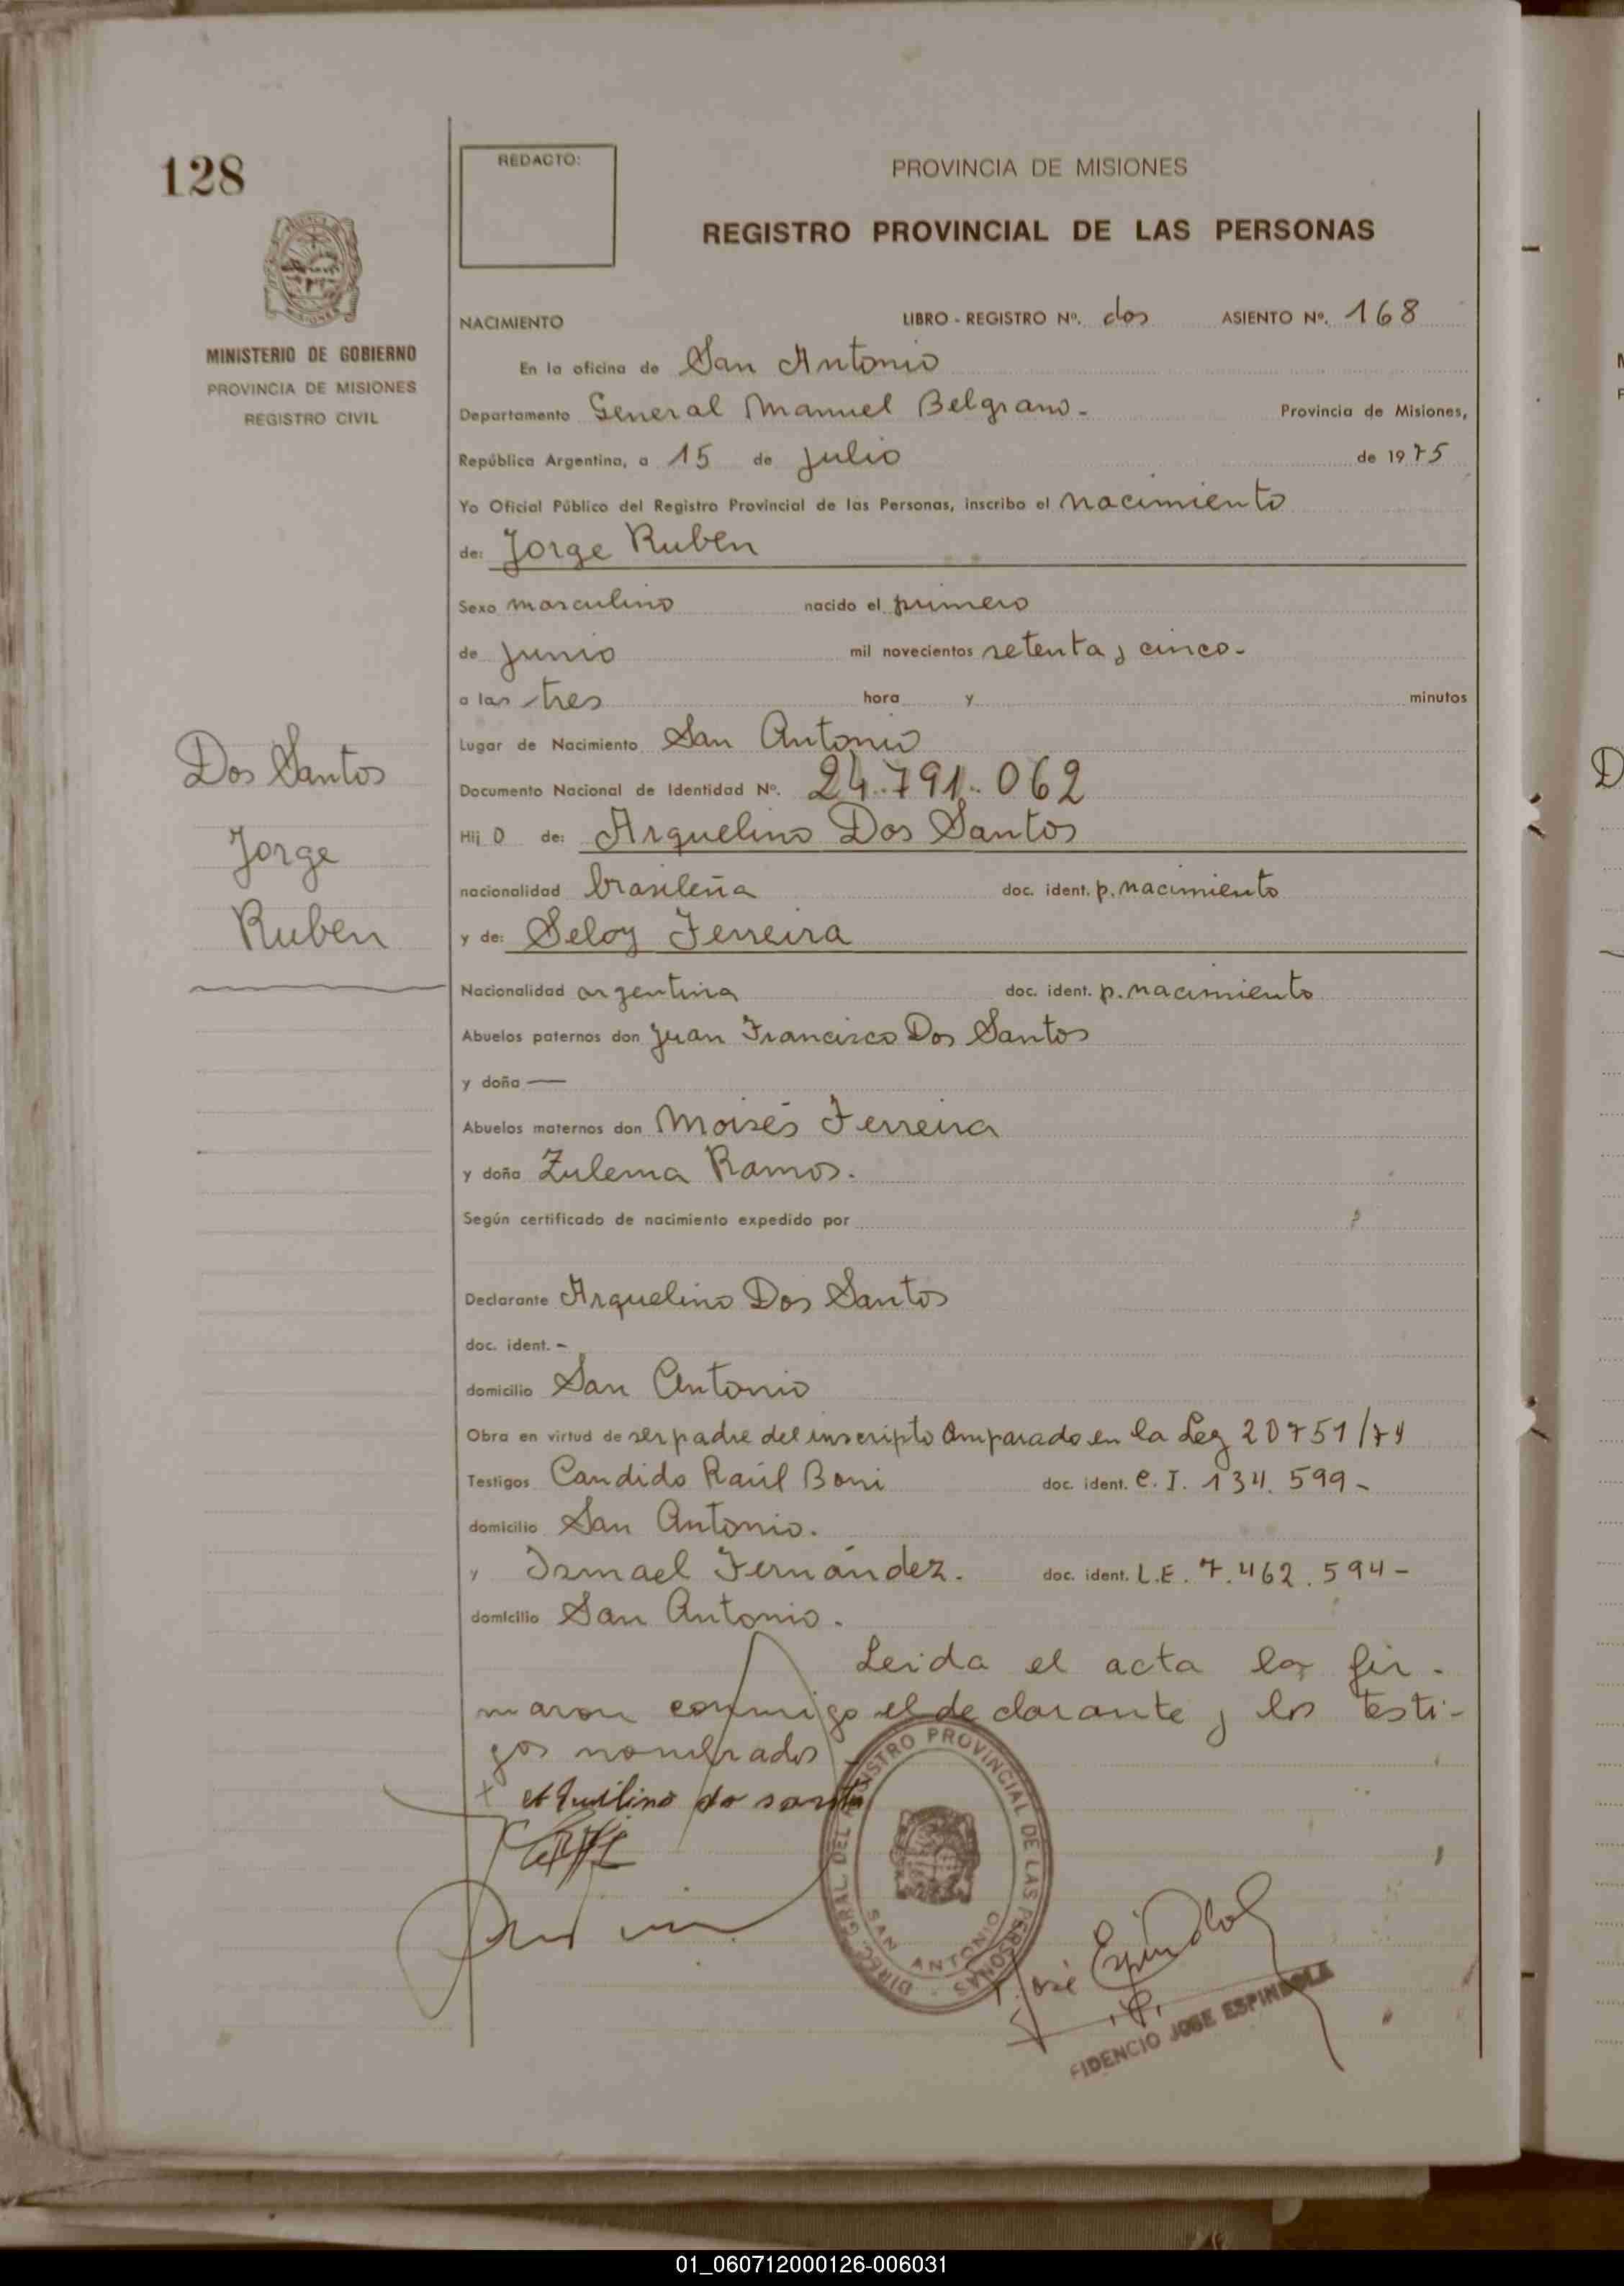 128
REDACTO:
PROVINCIA DE MISIONES
REGISTRO PROVINCIAL DE LAS PERSONAS
MINISTERIO DE GOBIERNO
PROVINCIA DE MISIONES
REGISTRO CIVIL
NACIMIENTO LIBRO - REGISTRO Nº. dos ASIENTO Nº. 168
En la oficina de San Antonio
Departamento General Manuel Belgrano - Provincia de Misiones,
República Argentina, a 15 de Julio de 1975
Yo Oficial Público del Registro Provincial de las Personas, inscribo el nacimiento
de: Jorge Ruben
Sexo masculino nacido el primero
de Junio mil novecientos setenta y cinco-
a las tres hora y minutos
Dos Santos
Jorge
Ruben
Lugar de Nacimiento San Antonio
Documento Nacional de Identidad Nº. 24.791.062
Hij o de: Arquelino Dos Santos
nacionalidad brasileña doc. ident. p. nacimiento
y de: Seloy Ferreira
Nacionalidad argentina doc. ident. p. nacimiento
Abuelos paternos don Juan Francisco Dos Santos
y doña —
Abuelos maternos don Moisés Ferreira
y doña Zulema Ramos.
Según certificado de nacimiento expedido por
Declarante Arquelino Dos Santos
doc. ident. -
domicilio San Antonio
Obra en virtud de ser padre del inscripto Amparado en la Ley 20751/74
Testigos Candido Raúl Boni doc. ident. C. I. 134.599-
domicilio San Antonio.
y Ismael Fernández. doc. ident. L.E. 7.462.594-
domicilio San Antonio.
Leida el acta la fir-
maron conmigo el declarante y los testi-
gos nombrados
DIREC. GRAL. DEL REGISTRO PROVINCIAL DE LAS PERSONAS
SAN ANTONIO
José Espindola
FIDENCIO JOSE ESPINDOLA
01_060712000126-006031